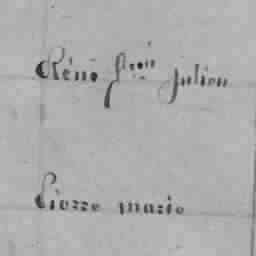 Réné fr.çois julien
Pierre marie